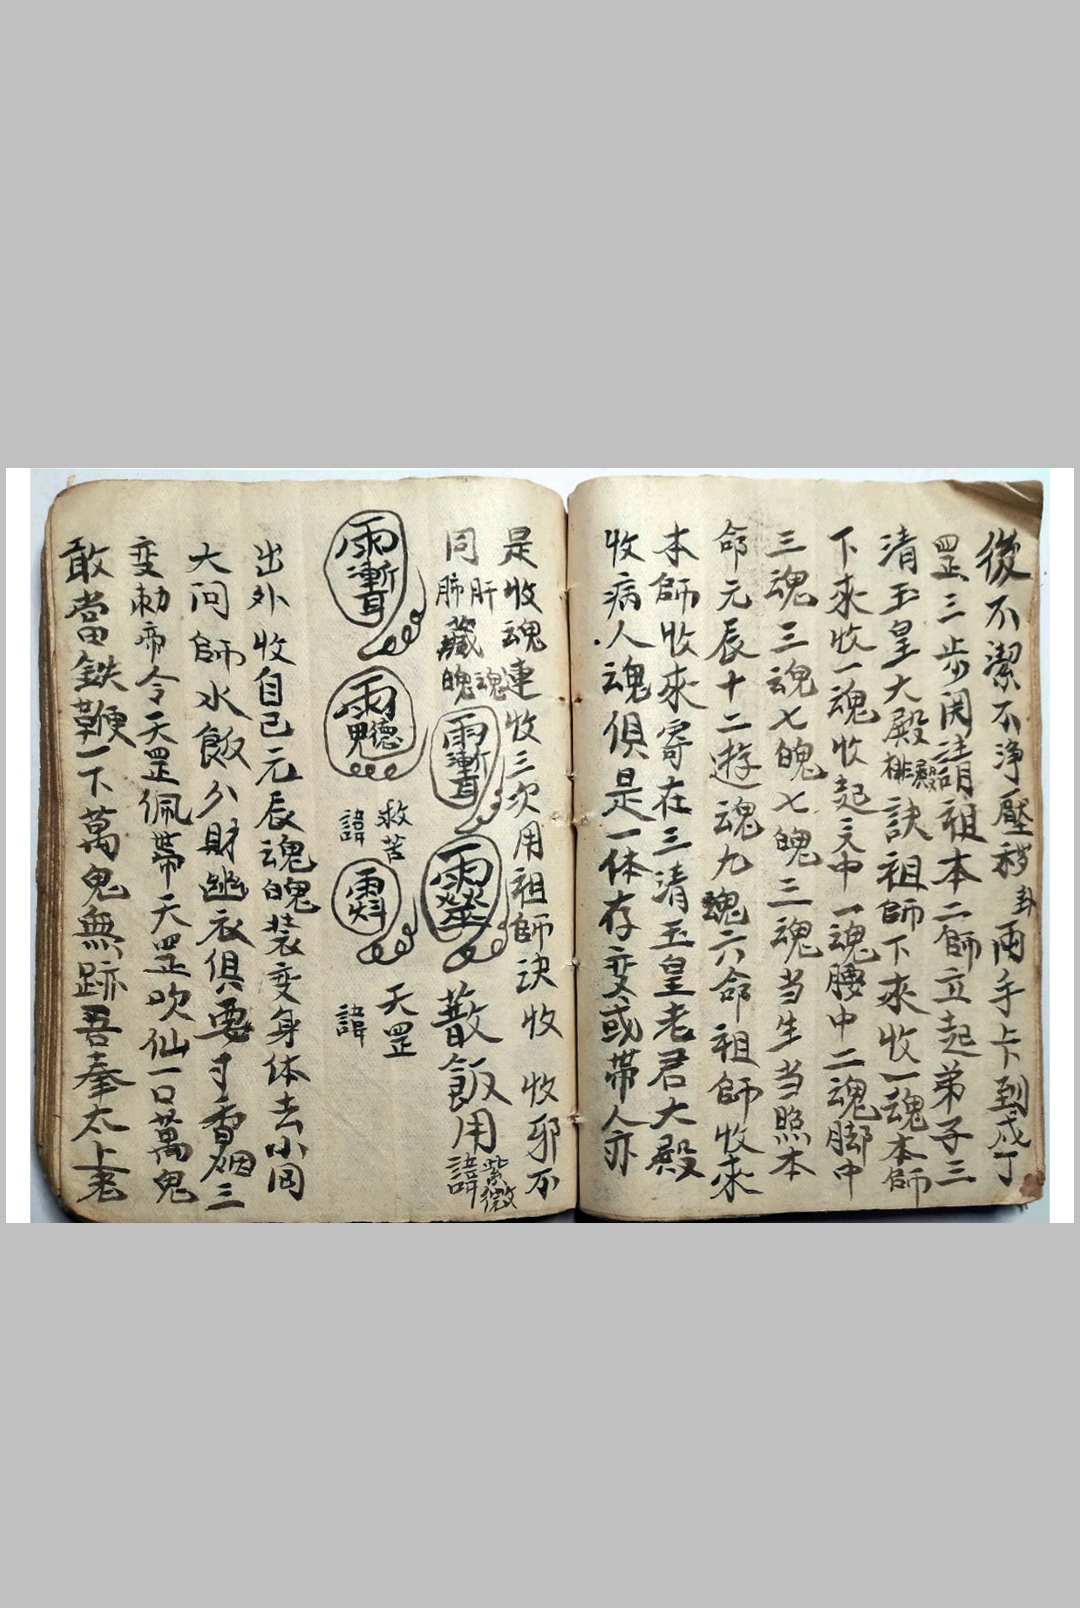 後不潔不净壓移卦兩手卡到戌丁
罡三步関請祖本二師立起弟子三
清玉皇大殿排殿訣祖師下來收一魂本師
下來收一魂收起 中一魂腰中二魂脚中
三魂三魂七魄七魄三魂当生当照本
命元辰十二遊魂九魂六命祖師收來
本師收來寄在三清玉皇老君大殿
收病人魂俱是一体存变或帶人亦
是收魂連收三次用祖師決收 收邪不
同肝藏魂肺藏魄 蕞飯用紫微諱
救苦諱 天罡諱
出外收自己元辰魂魄装变身体去小冈
大问師水飯分財 衣俱要寸香烟三
变勅帝令天罡佩帶天罡吹仙一口萬鬼
敢當鉄鞭一下萬鬼無跡吾奉太上老